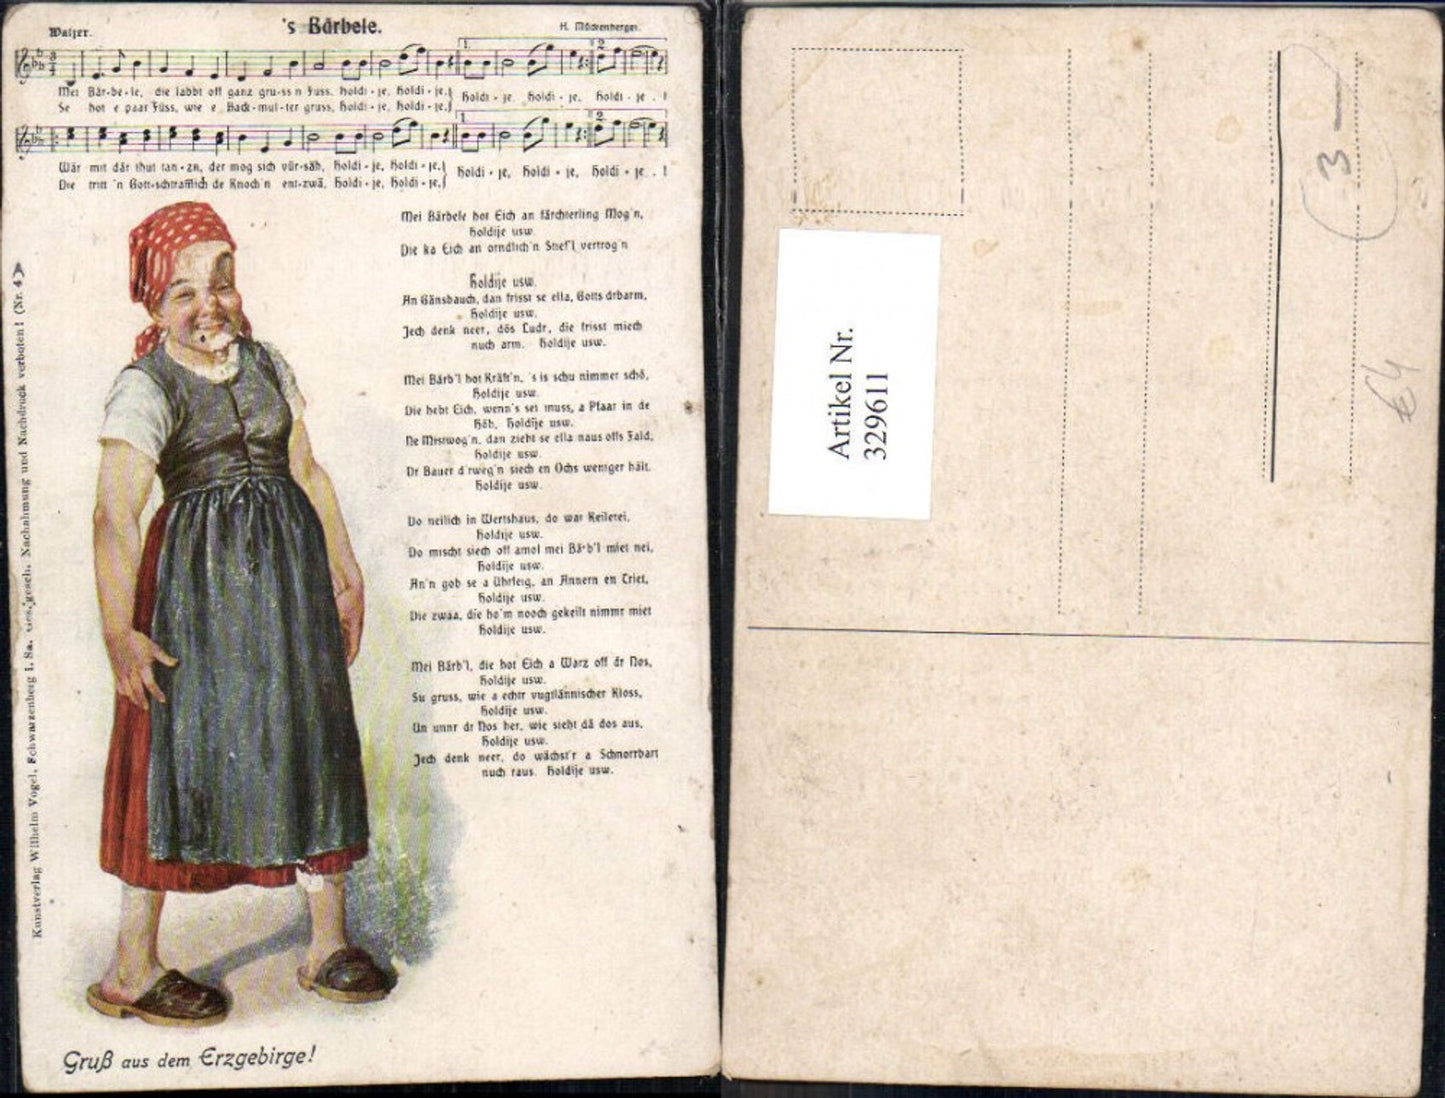 Walzer.
's Bärbele.
H. Mückenberger.
1.
2.
Mei Bär-be-le, die labbt off ganz gru-ss'n Füss, holdi-je, holdi-je.
Se hot e paar Füss, wie e Back-mul-ter gruss, holdi-je, holdi-je.
holdi-je, holdi-je, holdi-je.!
1.
2.
Wär mit där thut tan-zn, der mog sich vür-säh, holdi-je, holdi-je,
Die tritt 'n Gott-schtrafflich de Knoch'n ent-zwä, holdi-je, holdi-je,
holdi-je, holdi-je, holdi-je.!
Mei Bärbele hot Eich an färchterling Mog'n,
holdije usw.
Die ka Eich an orndlich'n Stief'l vertrog'n
holdije usw.
An Gänsbauch, dan frisst se ella, Gotts drbarm,
holdije usw.
Jech denk neer, dös Ludr, die frisst miech
nuch arm. holdije usw.
Mei Bärb'l hot Kräft'n, 's is schu nimmer schö,
holdije usw.
Die hebt Eich, wenn's sei muss, a Pfaar in de
höh, holdije usw.
Ne Mistwog'n, dan zieht se ella naus offs Fald,
holdije usw.
Dr Bauer d'rweg'n siech en Ochs weniger hält.
holdije usw.
Do neilich in Wertshaus, do war Keilerei,
holdije usw.
Do mischt siech off amol mei Bärb'l miet nei,
holdije usw.
An'n gob se a Uhrfeig, an Annern en Triet,
holdije usw.
Die zwaa, die ho'm nooch gekeilt nimmr miet
holdije usw.
Mei Bärb'l, die hot Eich a Warz off dr Nos,
holdije usw.
Su gruss, wie a echtr vugtlännischer Kloss,
holdije usw.
Un unnr dr Nos her, wie sieht dä dos aus,
holdije usw.
Jech denk neer, do wächst'r a Schnorrbart
nuch raus. holdije usw.
Kunstverlag Wilhelm Vogel, Schwarzenberg i. Sa. Ges. gesch. Nachahmung und Nachdruck verboten! (Nr. 4)
Gruß aus dem Erzgebirge!
Artikel Nr.
329611
3 —
€4